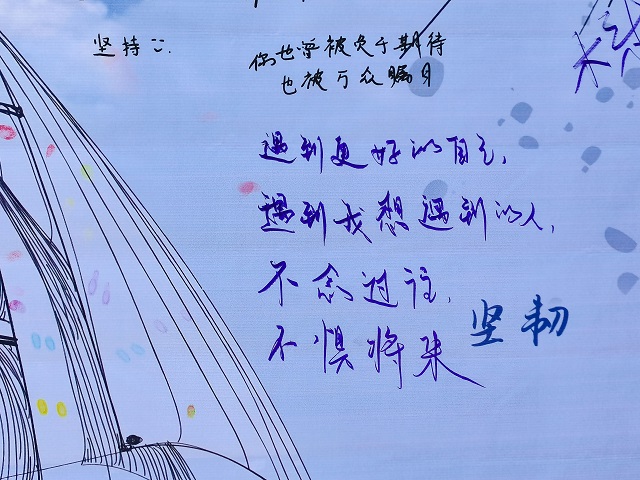 坚持
你也曾被免于期待
也被万众瞩目
遇到更好的自己,
遇到我想遇到的人,
不念过往,
不惧将来
坚韧